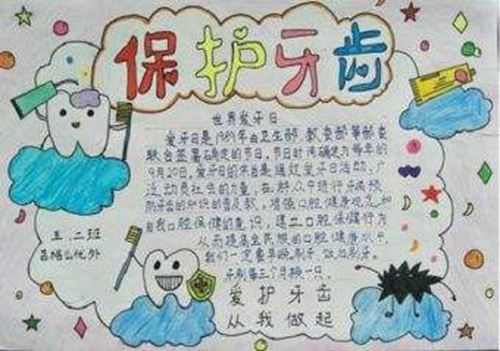 保护牙齿
世界爱牙日
爱牙日是1989年由卫生部、教委部等部委
联合签署确定的节日,节日时间确定为每年的
9月20日,爱牙日的宗旨是通过爱牙日活动,广
泛动员社会的力量,在群众中进行牙病预
防牙齿的知识的普及教,增强口腔健康观念和
自我口腔保健的意识,建立口腔保健行为
从而提高全民族的口腔健康水平,
我们一定要早晚刷牙,饭后刷牙。
牙刷每三个月换一只。
爱护牙齿
从我做起
五、二班